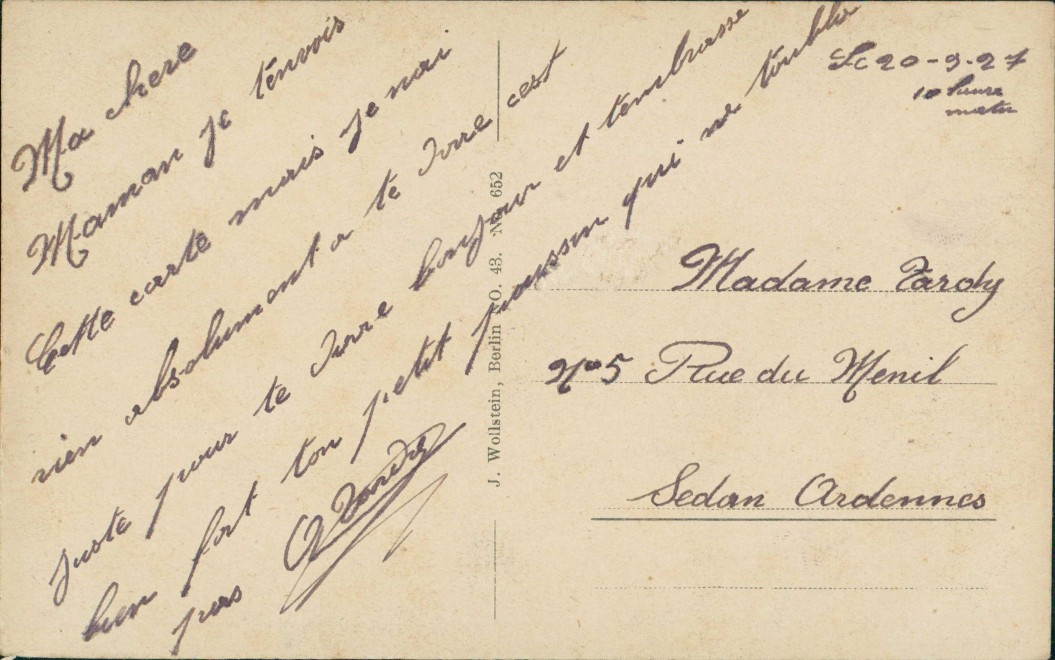 Le 20-9-27
10 heure
matin
Ma chere
Maman je tenvois
Cette carte mais je nai
rien absolument a te dire cest
juste pour te dire bonjour et tembrasse
bien fort ton petit poussin qui ne toublie
pas
J. Wollstein, Berlin NO. 43. No. 652
Madame Tardy
No 5 Rue du Menil
Sedan Ardennes